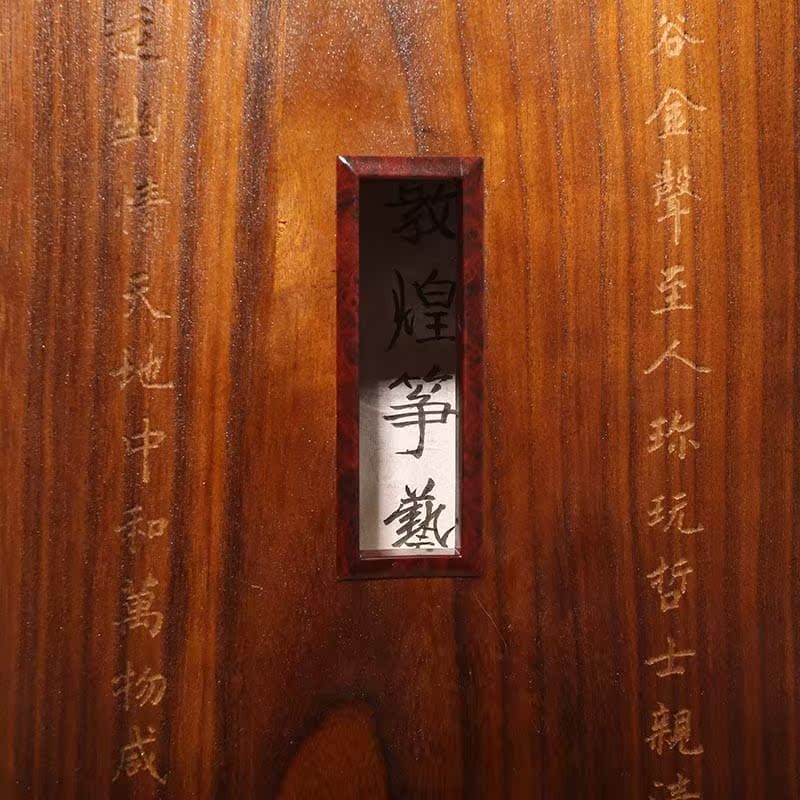 谷金聲至人珎玩哲士親
敦煌筝藝
達幽情天地中和萬物咸